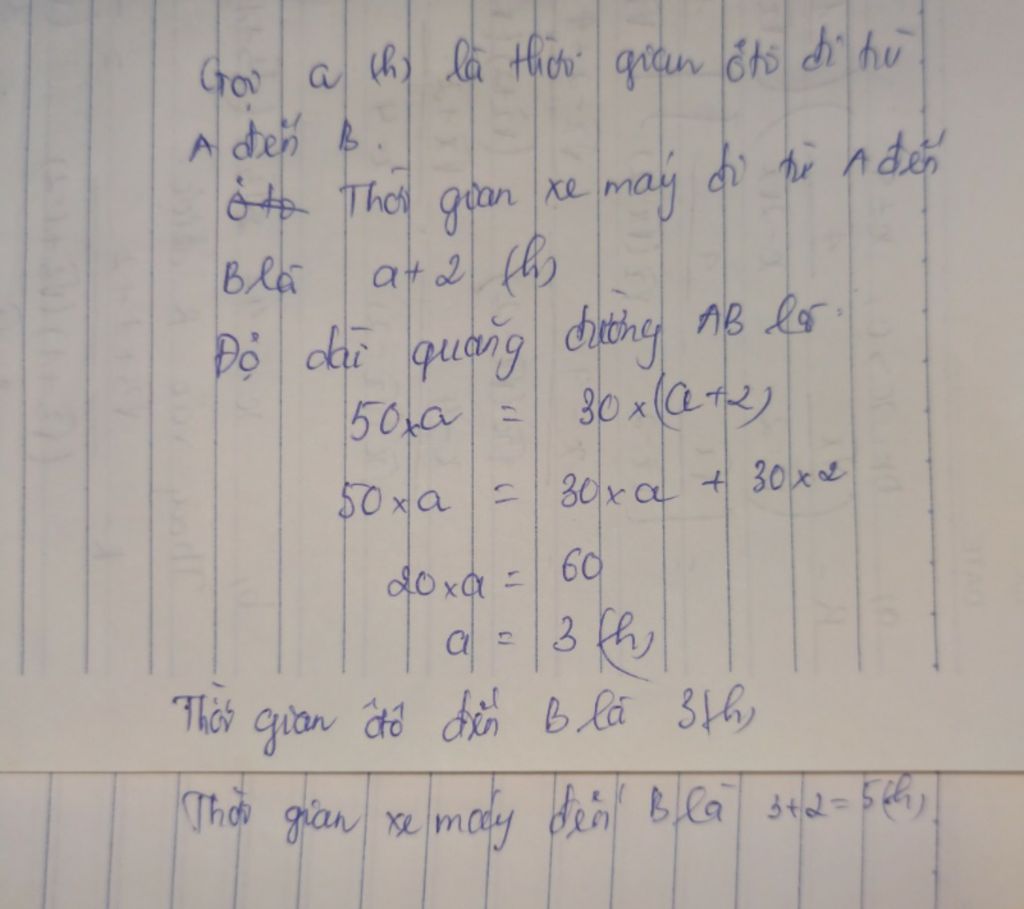 Gọi a (h) là thời gian ôtô đi từ
A đến B.
ô tô Thời gian xe máy đi từ A đến
B là a + 2 (h)
Độ dài quãng đường AB là:
50 × a = 30 × (a + 2)
50 × a = 30 × a + 30 × 2
20 × a = 60
a = 3 (h)
Thời gian ôtô đến B là 3 (h)
Thời gian xe máy đến B là 3 + 2 = 5 (h)